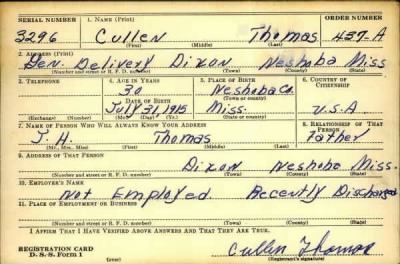 SERIAL NUMBER 1. NAME (Print) ORDER NUMBER
3296 Cullen Thomas 437-A
(First) (Middle) (Last)
2. ADDRESS (Print)
Gen. Delivery Dixon Neshoba Miss
(Number and street or R. F. D. number) (Town) (County) (State)
3. TELEPHONE 4. AGE IN YEARS 5. PLACE OF BIRTH 6. COUNTRY OF CITIZENSHIP
30 Neshoba Co.
DATE OF BIRTH (Town or county)
July 31, 1915 Miss. U.S.A
(Exchange) (Number) (Mo.) (Day) (Yr.) (State or country)
7. NAME OF PERSON WHO WILL ALWAYS KNOW YOUR ADDRESS 8. RELATIONSHIP OF THAT PERSON
J. H. Thomas Father
(Mr., Mrs., Miss) (First) (Middle) (Last)
9. ADDRESS OF THAT PERSON
Dixon Neshoba Miss.
(Number and street or R. F. D. number) (Town) (County) (State)
10. EMPLOYER'S NAME
Not Employed Recently Discharged
11. PLACE OF EMPLOYMENT OR BUSINESS
(Number and street or R. F. D. number) (Town) (County) (State)
I AFFIRM THAT I HAVE VERIFIED ABOVE ANSWERS AND THAT THEY ARE TRUE.
REGISTRATION CARD
D. S. S. Form 1 Cullen Thomas
(Registrant's signature)